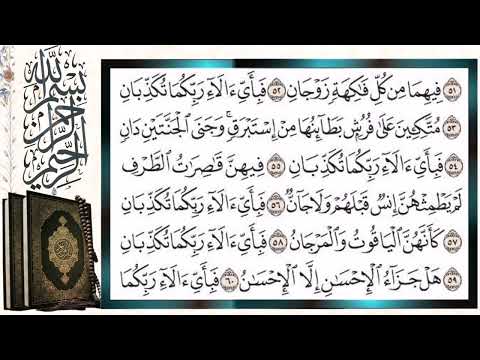 بسم الله الرحمن الرحيم
٥١ فِيهِمَا مِن كُلِّ فَٰكِهَةٍ زَوْجَانِ ٥٢ فَبِأَيِّ ءَالَآءِ رَبِّكُمَا تُكَذِّبَانِ
٥٣ مُتَّكِـِٔينَ عَلَىٰ فُرُشٍۭ بَطَآئِنُهَا مِنْ إِسْتَبْرَقٍ ۚ وَجَنَى ٱلْجَنَّتَيْنِ دَانٍ
٥٤ فَبِأَيِّ ءَالَآءِ رَبِّكُمَا تُكَذِّبَانِ ٥٥ فِيهِنَّ قَٰصِرَٰتُ ٱلطَّرْفِ
لَمْ يَطْمِثْهُنَّ إِنسٌ قَبْلَهُمْ وَلَا جَآنٌّ ٥٦ فَبِأَيِّ ءَالَآءِ رَبِّكُمَا تُكَذِّبَانِ
٥٧ كَأَنَّهُنَّ ٱلْيَاقُوتُ وَٱلْمَرْجَانُ ٥٨ فَبِأَيِّ ءَالَآءِ رَبِّكُمَا تُكَذِّبَانِ
٥٩ هَلْ جَزَآءُ ٱلْإِحْسَٰنِ إِلَّا ٱلْإِحْسَٰنُ ٦٠ فَبِأَيِّ ءَالَآءِ رَبِّكُمَا